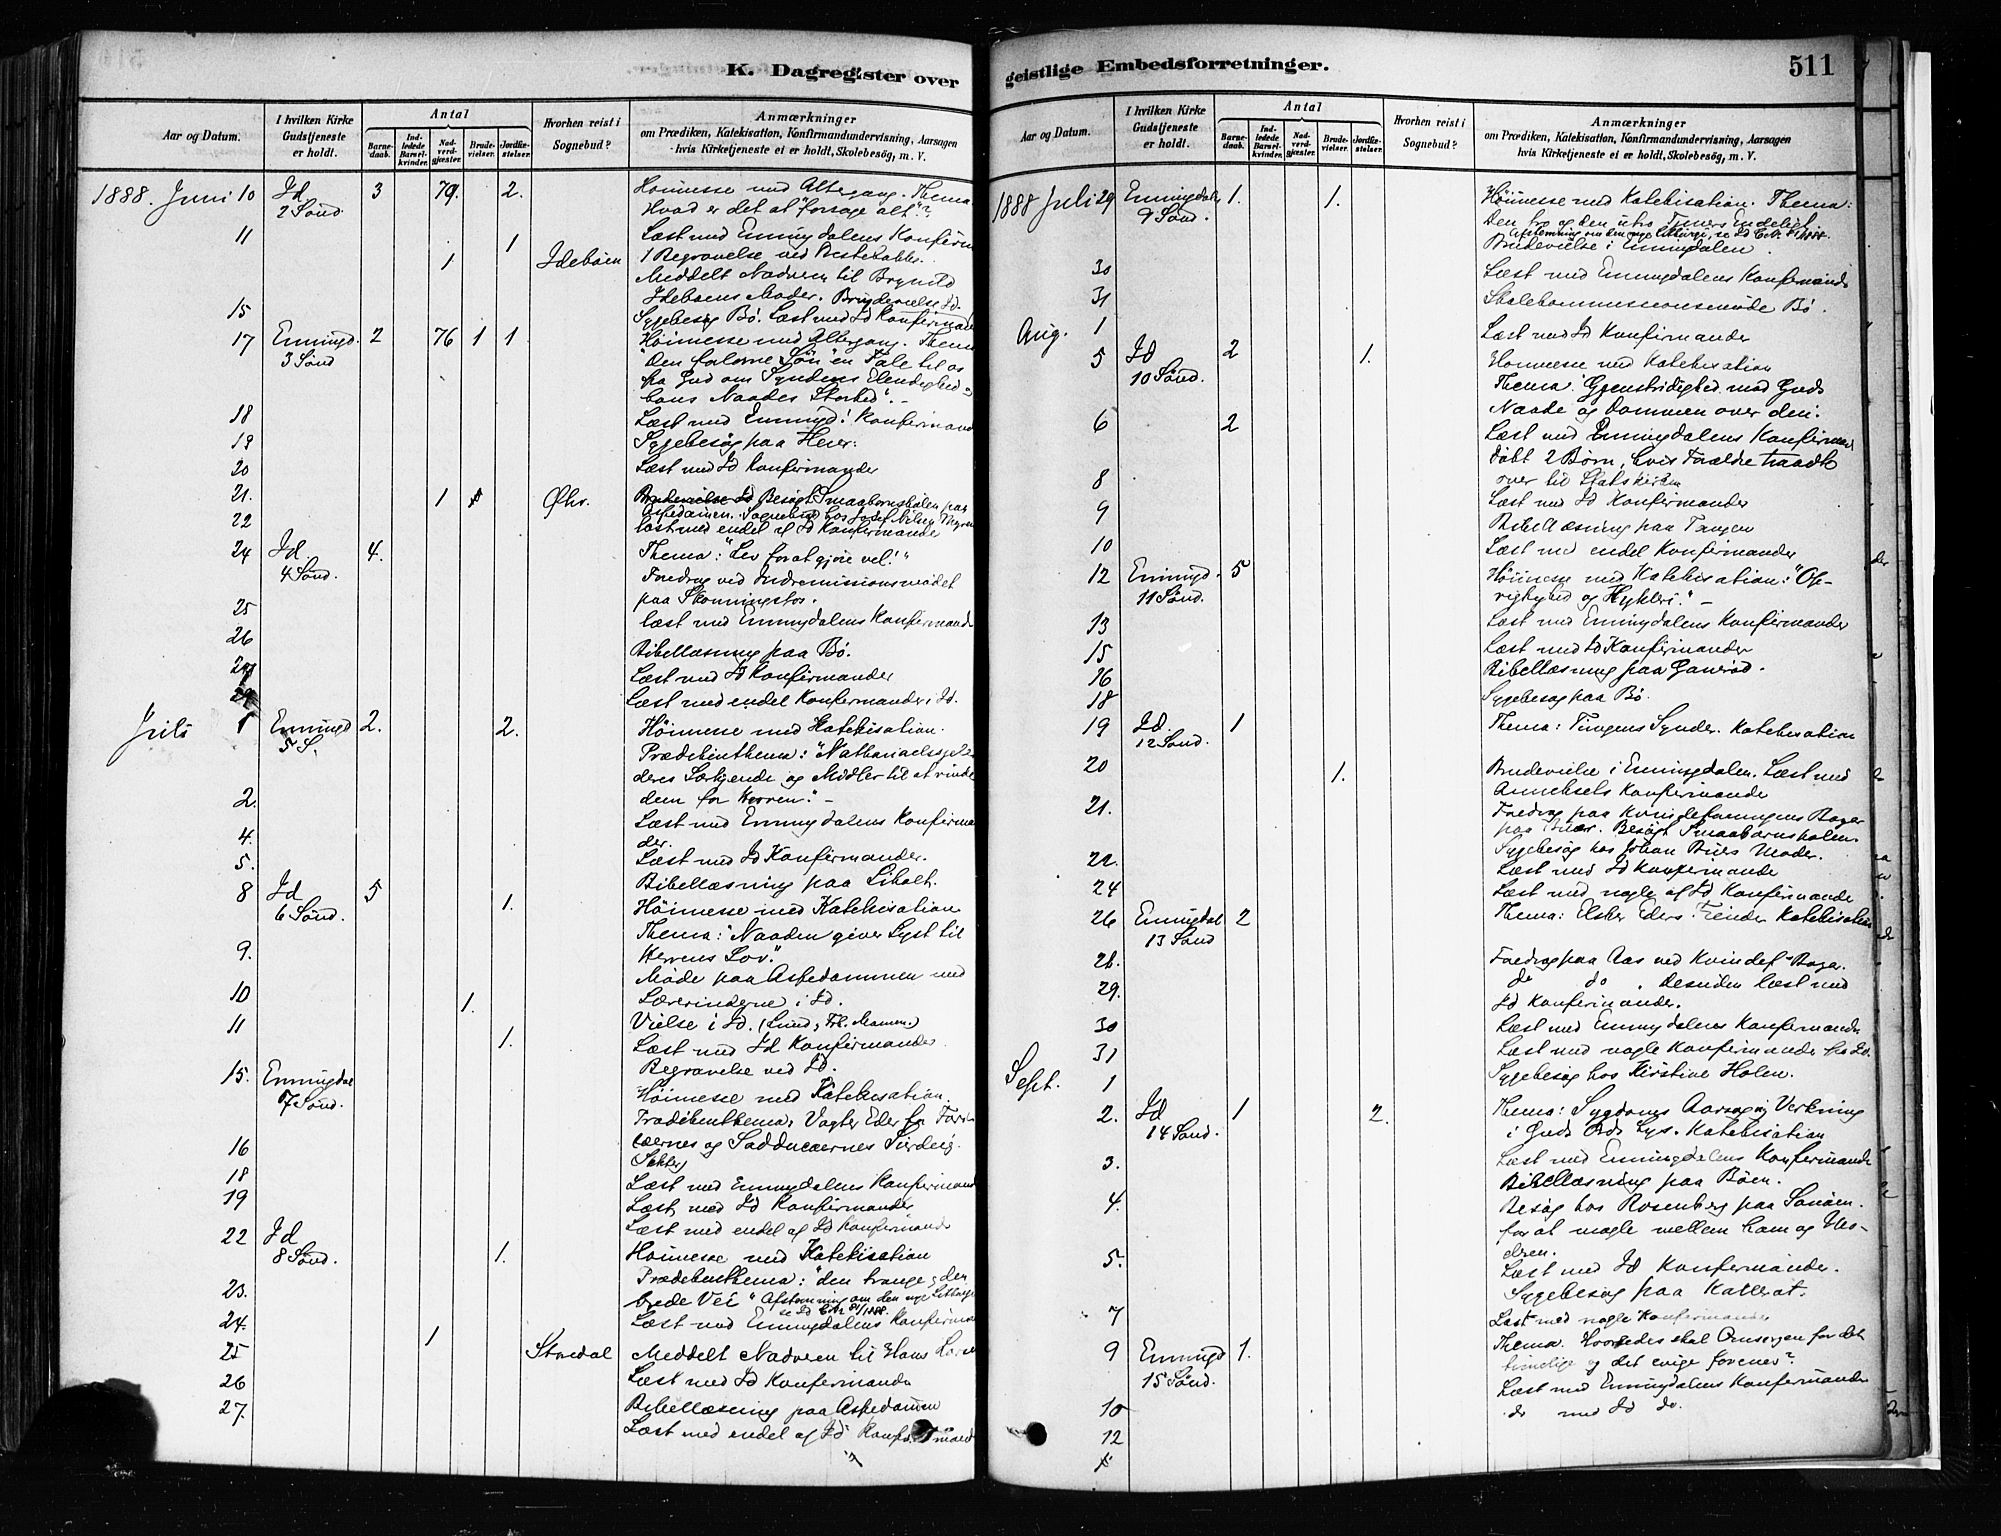 K. Dagregister over
Aar og Datum.
I hvilken Kirke Gudstjeneste er holdt.
Antal
Barnedaab.
Indledede Barselkvinder.
Nadverdgjæster.
Brudevielser.
Jordfæstelser.
Hvorhen reist i Sognebud?
Anmærkninger
om Prædiken, Katekisation, Konfirmandundervisning, Aarsagen
hvis Kirketjeneste ei er holdt, Skolebesög, m. V.
1888. Juni 10 Id 3 79. 2. Höimesse med Altergang. Thema
2 Sönd. Hvad er det at "forsage alt"?
11 1 Læst med Enningdalens Konfirm
1 Ideböen 1 Begravelse ved
Meddelt Nadveren til Brynild
Ideböens Moder. Brudevielse Id.
15 Sygebesög Bö. Læst med Id Konfirmander
17 Enningd. 2 76 1 1 Höimesse med Altergang. Thema
3 Sönd "Den fortorne Sön" en Tale til os
fra Gud om Syndens Elendighed og
hans Naades Storhed". -
18 Læst med Enningd. Konfirmand
19 Sygebesög paa Heier.
20 Læst med Id Konfirmander
21. 1 Öbr. Brudevielse Id Besögt Smaabarnskolen paa
Aspedammen. Sognebud hos Josef Nilsen
22 læst med endel af Id Konfirmande
24 Id. 4. Thema: "Lev for at gjöre vel!"
4 Sönd. Foredrag ved Indremissionsmödet
paa Skonningsfos.
25 læst med Enningdalens Konfirmand
26 Bibellæsning paa Bö.
27 Læst med Id Konfirmander
29 Læst med endel Konfirmander i Id.
Juli 1 Enningd 2. 2. Höimesse med Katekisation.
5 S. Prædikenthema: "Nathanaelssjæle
deres Særkjende og Midler til at vinde
dem for Herren." -
2. Læst med Enningdalens Konfirman
der.
4. Læst med Id Konfirmander.
5. Bibellæsning paa Liholt.
8 Id 5 1. Höimesse med Katekisation
6 Sönd. Thema: "Naaden giver Lyst til
Herrens Lov."
9. Möde paa Aspedammen med
Lærerinderne i Id.
10 1. Vielse i Id. (Lund, Frk. Mamen.)
11 1. Læst med Id Konfirmander.
Begravelse ved Id.
15. Enningdal Höimesse med Katekisation.
7 Sönd. Prædikenthema: Vogter Eder for Fari-
sæernes og Sadducæernes Surdeig.
16 Læst med Enningdalens Konfirmand
18 Læst med Id Konfirmander
19 Læst med endel af Id Konfirmande
22 Id 1. Höimesse med Katekisation
8 Sönd. Prædikenthema: "den trange og den
brede Vei" Afstemning om den nye Liturgi
se Id 81/1888.
23. Læst med Enningdalens Konfirman
24. 1 Stredal Meddelt Nadveren til Hans
25 Læst med Id Konfirmande
26 Bibellæsning paa Aspedamen
27. Læst med endel af Id Konfirmand
geistlige Embedsforretninger.
511
Aar og Datum.
I hvilken Kirke Gudstjeneste er holdt.
Antal
Barnedaab.
Indledede Barselkvinder.
Nadverdgjæster.
Brudevielser.
Jordfæstelser.
Hvorhen reist i Sognebud?
Anmærkninger
om Prædiken, Katekisation, Konfirmandundervisning, Aarsagen
hvis Kirketjeneste ei er holdt, Skolebesög, m. V.
1888 Juli 29 Enningdalen 1. 1. Höimesse med Katekisation. Thema:
9 Sönd. Den tro og den utro Tjeners Endeligt.
Afstemning om den nye Liturgi, se Id 81/1888.
Brudevielse i Enningdalen.
30 Læst med Enningdalens Konfirmande
31 Skolekommissionsmöde Bö.
Aug. 1 Læst med Id Konfirmander
5 Id 2 1. Höimesse med Katekisation
10 Sönd. Thema: Gjenstridighed mod Guds
Naade og Dommen over den.
6 2 Læst med Enningdalens Konfirman
döbt 2 Börn, hvis Forældre traadte
over til Statskirken
8 Læst med Id Konfirmander
9 Bibellæsning paa Tangen
10 Læst med endel Konfirmander
12 Enningd. 5 Höimesse med Katekisation: "Op-
11 Sönd. rigtighed og Hykleri." -
13 Læst med Enningdalens Konfirmander
15 Læst med Id Konfirmander
16 Bibellæsning paa Ganeröd.
18 Sygebesög paa Bö.
19 Id. 1 Thema: Tungens Synder. Katekisation
12 Sönd.
20 1. Brudevielse i Enningdalen. Læst med
Anneksets Konfirmande
21. Foredrag paa Kvindeforeningens Bazar
paa Besögt Smaabarnskolen.
Sygebesög hos Johan Moder.
22. Læst med Id Konfirmande
24 Læst med nogle af Id Konfirmande
26 Enningdal 2 Thema: Elsker Eders Fiender Katekisation
13 Sönd
28. Foredrag paa Aas ved Kvindef. Bazar.
29. do do, desuden læst med
Id Konfirmander.
30 Læst med Enningdalens Konfirmande
31 Læst med nogle Konfirmander fra Id.
Sept. 1 Sygebesög hos Kirstine Holen.
2. Id 1 2. Thema: Sygdoms Aarsag og Virkning
14 Sönd. i Guds Ords Lys. Katekisation
3. Læst med Enningdalens Konfirmande
Bibellæsning paa Böen.
4. Besög hos Rosenberg paa
for at mægle mellem ham og
5. Læst med Id Konfirmander.
Sygebesög paa Katterat.
7 Læst med nogle Konfirmander
9 Enningd 1. Thema. Hvorledes skal Omsorgen for det
15 Sönd. timelige og det evige forenes?
10 Læst med Enningdalens Konfirmander
12 do med Id do.